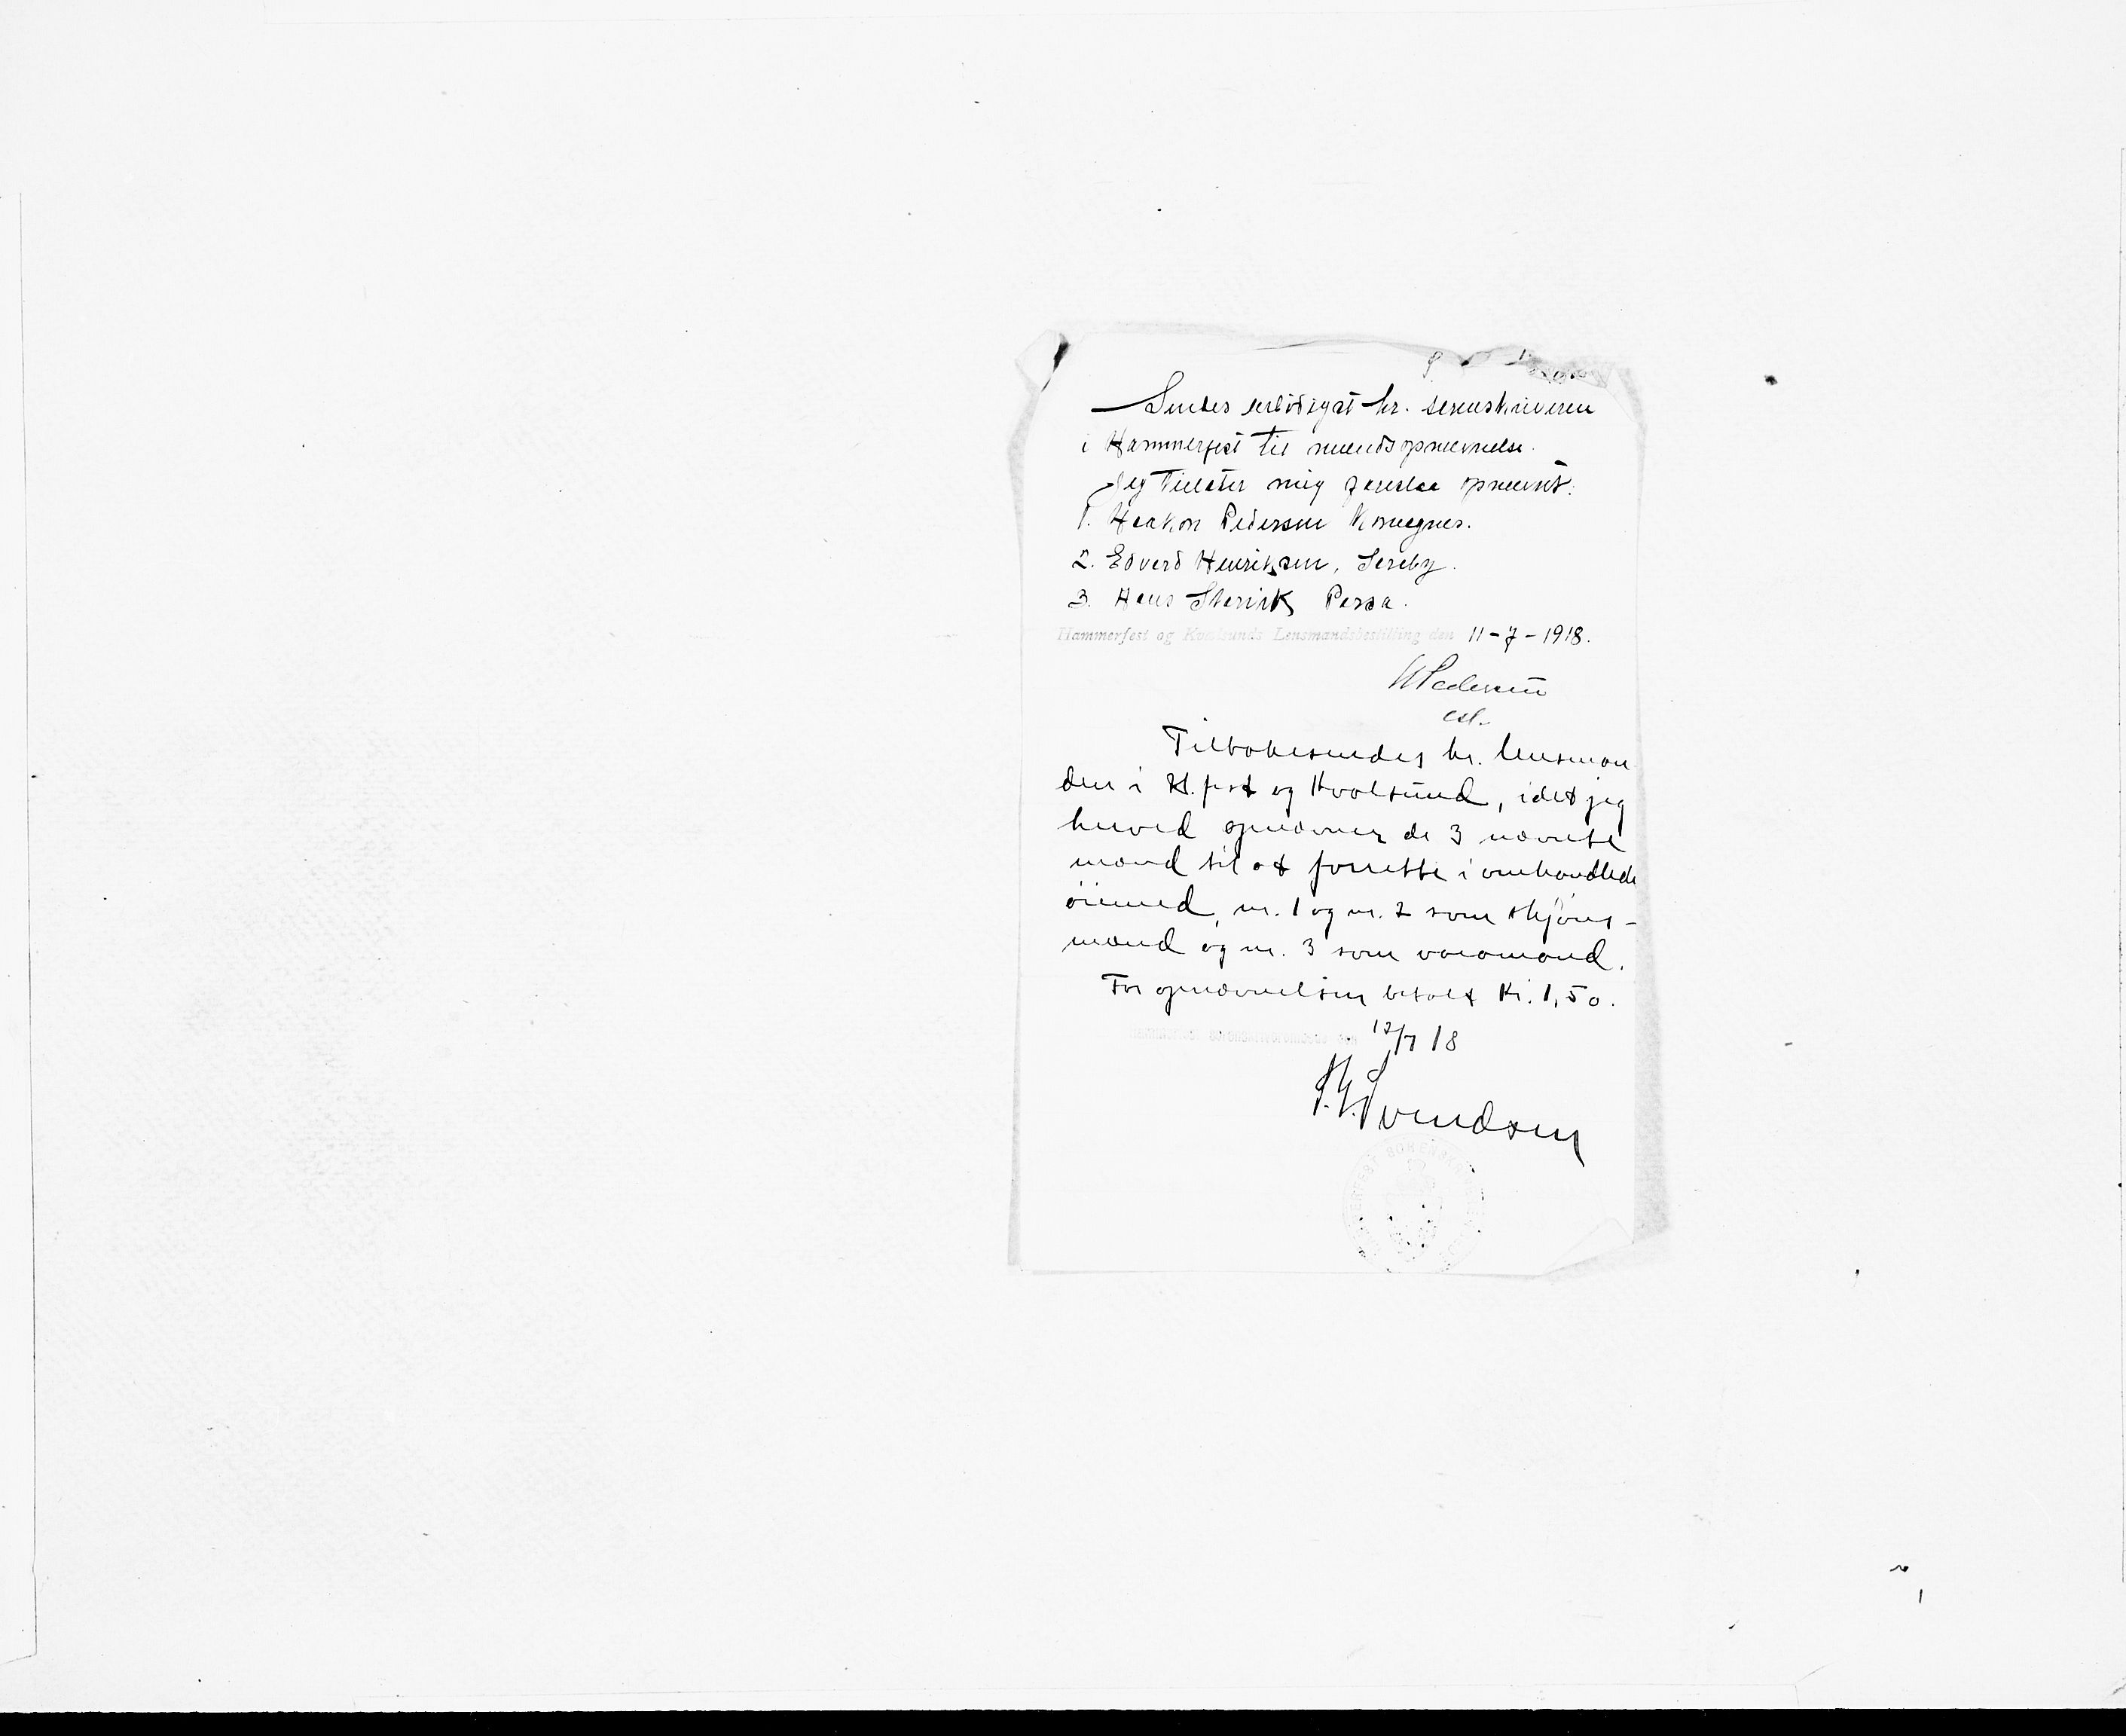 Sendes ærbödigst hr. sorenskriveren
i Hammerfest til mændsopnævnelse.
Jeg tillater mig foreslaa opnævnt:
1. Haakon Pedersen Komagnes.
2. Edvard Henriksen, Særby.
3. Hans Persa.
Hammerfest og Kvalsunds Lensmandsbestilling den 11-7-1918.
Pedersen
Tilbakesendes hr. lensman
den i H.fest og Kvalsund, idet jeg
herved opnævner de 3 nævnte
mænd til at forrette i omhandlede
öiemed, nr. 1 og nr. 2 som skjöns-
mænd og nr. 3 som varamand.
For opnævnelsen betalt Kr. 1,50.
Hammerfest sorenskriverembede den 12/7 18
Svendsen
HAMMERFEST SORENSKRIVEREMBEDE